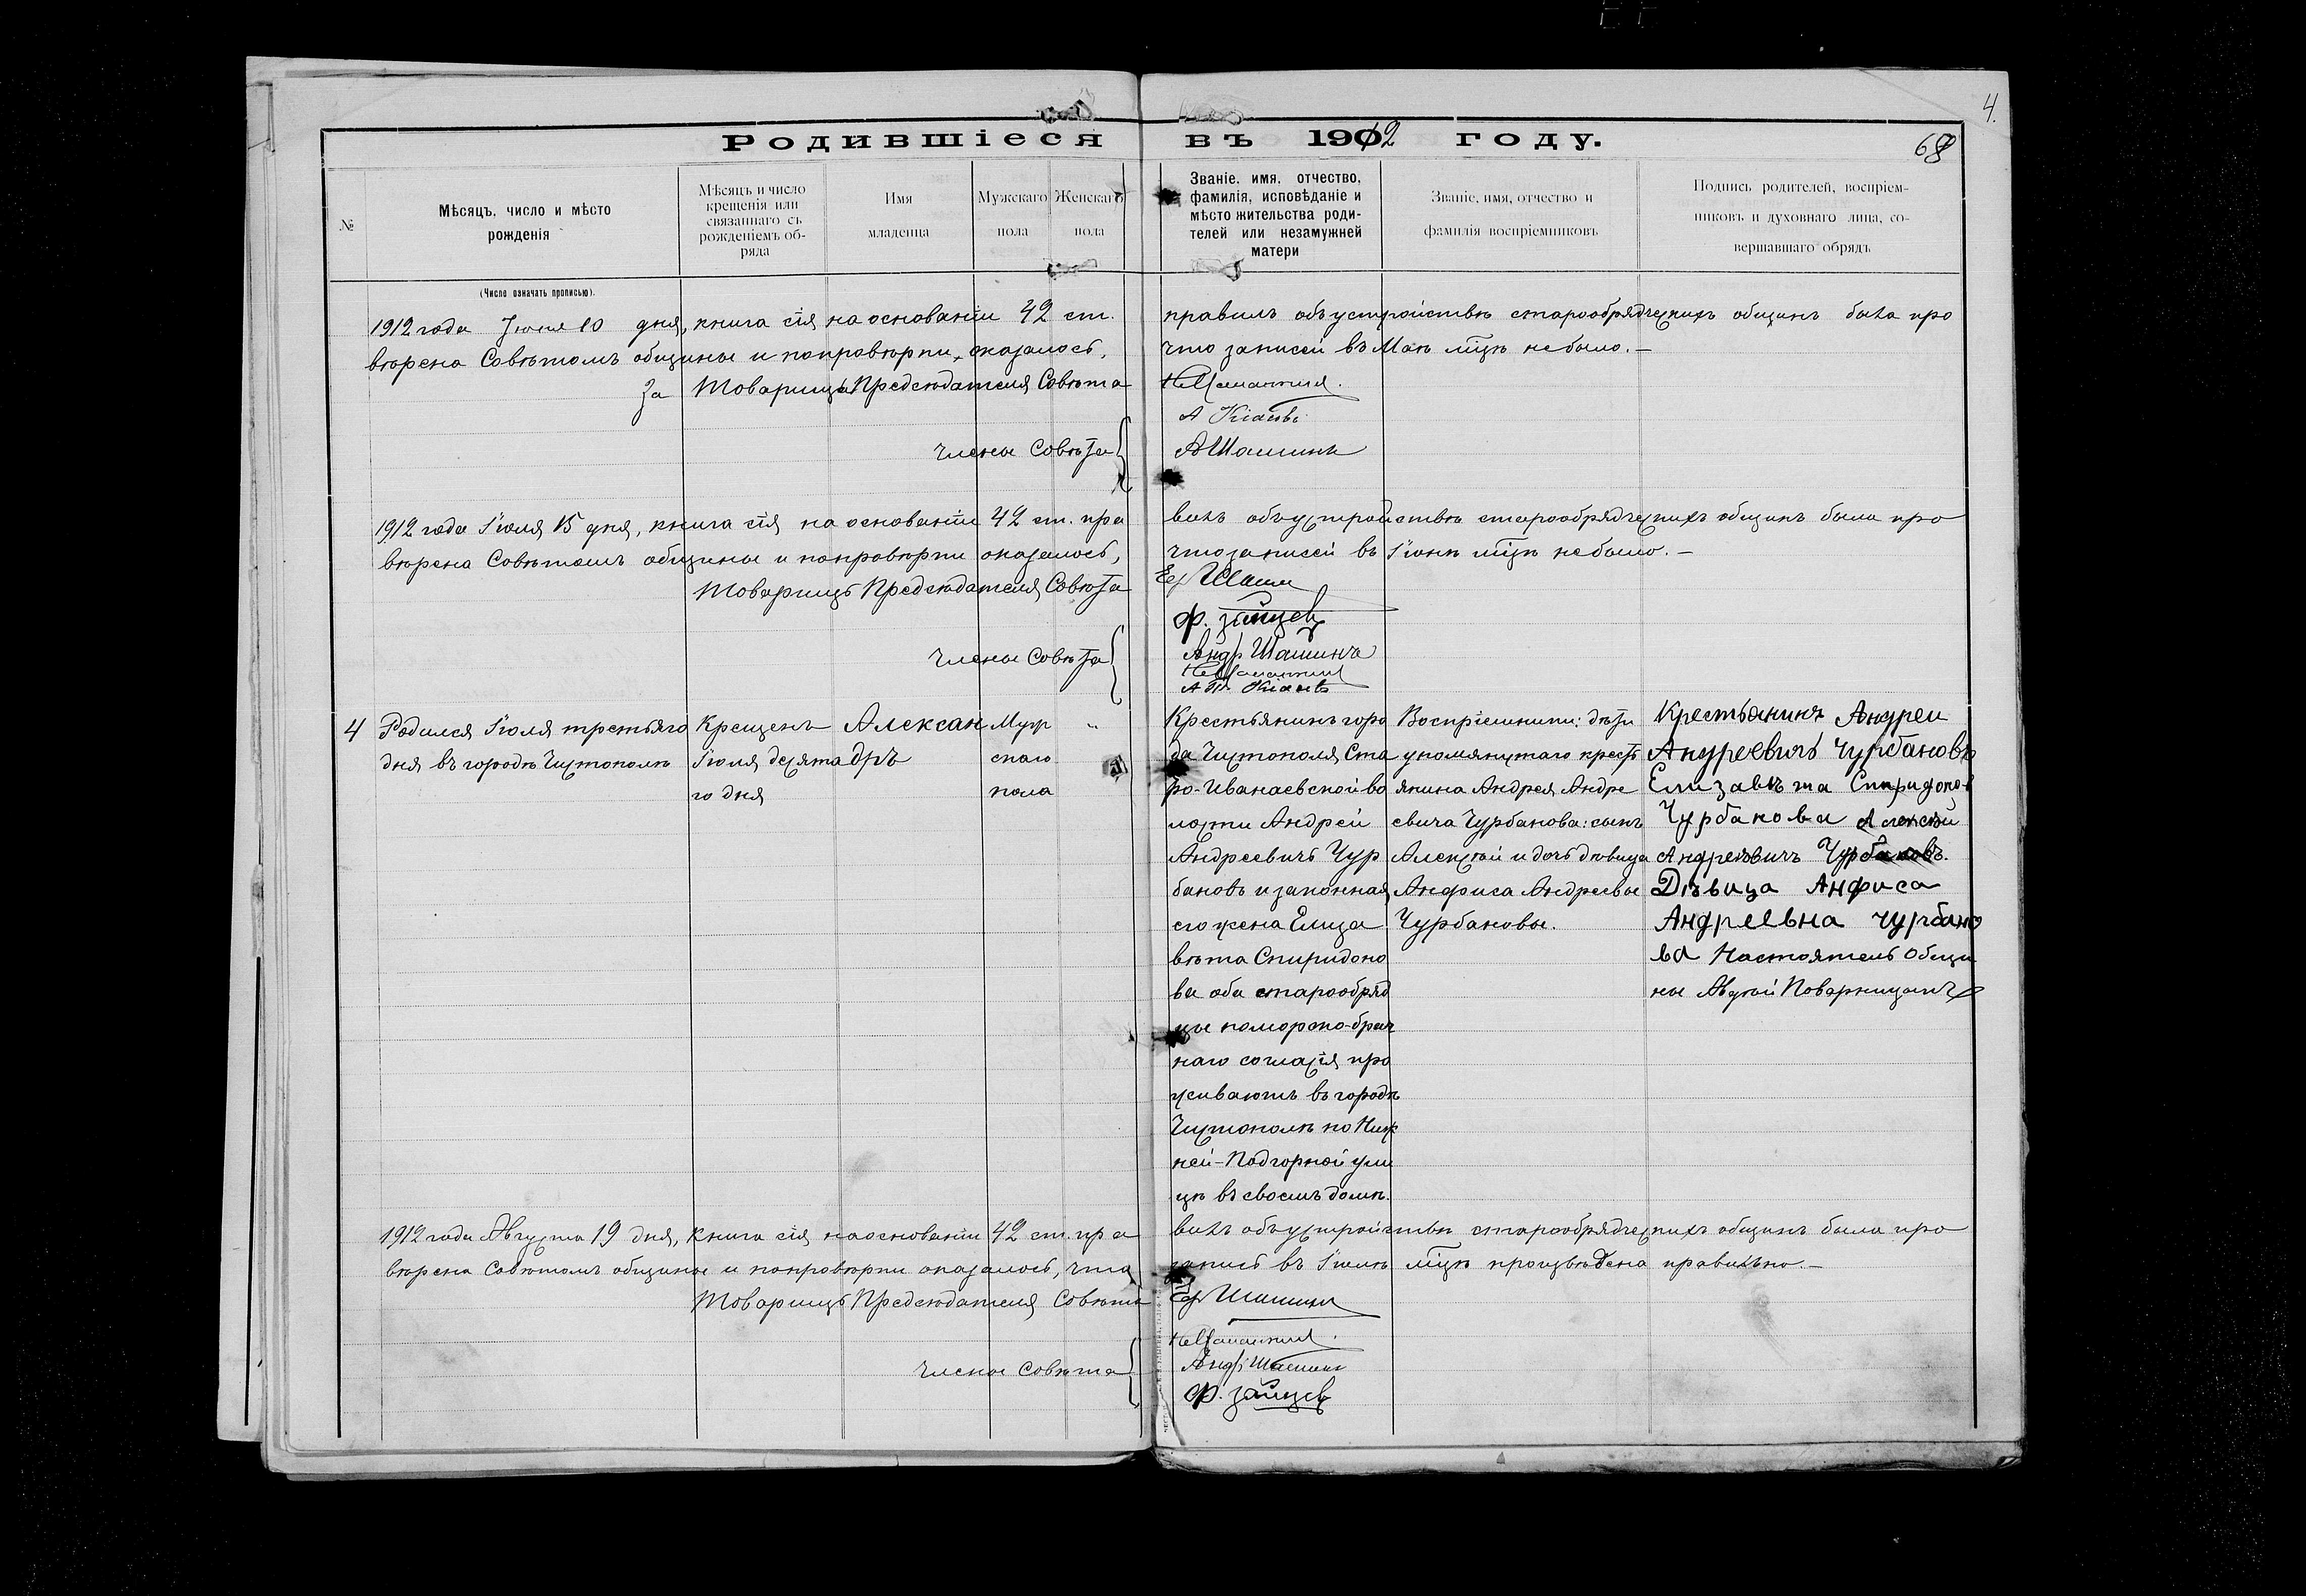 4.
Родившіеся въ 1912 году.
68
№
Мѣсяцъ, число и мѣсто
рожденія
Мѣсяцъ и число
крещенія или
связаннаго съ
рожденіемъ об-
ряда
Имя
младенца
Мужскаго
пола
Женскаго
пола
Званіе, имя, отчество,
фамилія, исповѣданіе и
мѣсто жительства роди-
телей или незамужней
матери
Званіе, имя, отчество и
фамилія воспріемниковъ
Подпись родителей, воспріем-
никовъ и духовнаго лица, со-
вершавшаго обрядъ
(Число означать прописью).
1912 года Іюня 10 дня, книга сія на основаніи 42 ст. правилъ объ устройствѣ старообрядческихъ общинъ была про
вѣрена Совѣтомъ общины и по провѣрки, оказалось, что записей въ Маѣ мѣсцѣ не было.—
За Товарища Предсѣдателя Совѣта
Члены Совѣта
А Шашинъ
1912 года Іюля 15 дня, книга сія на основаніи 42 ст. пра вилъ объ устройствѣ старообрядческихъ общинъ была про
вѣрена Совѣтомъ общины и по провѣрки оказалось, что записей въ Іюнѣ мѣсцѣ не было.—
Товарищъ Предсѣдателя Совѣта
Ф. Зайцев
Члены Совѣта
Андр Шашинъ
4
Родился Іюля третьяго
дня въ городѣ Чистополѣ
Крещенъ
Іюля десята
го дня
Алексан
дръ
Муж
скаго
пола
"
Крестьянинъ горо
да Чистополя Ста
ро-Иванаевской во
лости Андрей
Андреевичъ Чур
бановъ и законная
его жена Елиза
вѣта Спиридоно
ва оба старообряд
цы поморско-брач
наго согласія про
живаютъ въ городѣ
Чистополѣ по Ниж
ней-Подгорной ули
цѣ въ своемъ домѣ.
Воспріемники: дѣти
упомянутаго крестъ
янина Андрея Андре
евича Чурбанова: сынъ
Алексѣй и дочь дѣвица
Анфиса Андреевы
Чурбановы.
Крестьянинъ Андреи
Андреевичъ Чурбановъ
Елизавѣта Спиридонов
Чурбанова Алексѣй
Андреевичъ Чурбановъ.
Дѣвица Анфиса
Андреевна чурбано
ва Настоятель Общи
ны Авдѣй Поварницынъ
1912 года Августа 19 дня, книга сія на основаніи 42 ст. пра вилъ объ устройствѣ старообрядческихъ общинъ была про
вѣрена Совѣтомъ общины и по провѣрки оказалось, что запись въ Іюлѣ мѣсцѣ произвѣдена правильно.—
Товарищъ Предсѣдателя Совѣта
Еф Шашинъ
Члены Совѣта
Андр Шашинъ
Ф. Зайцев